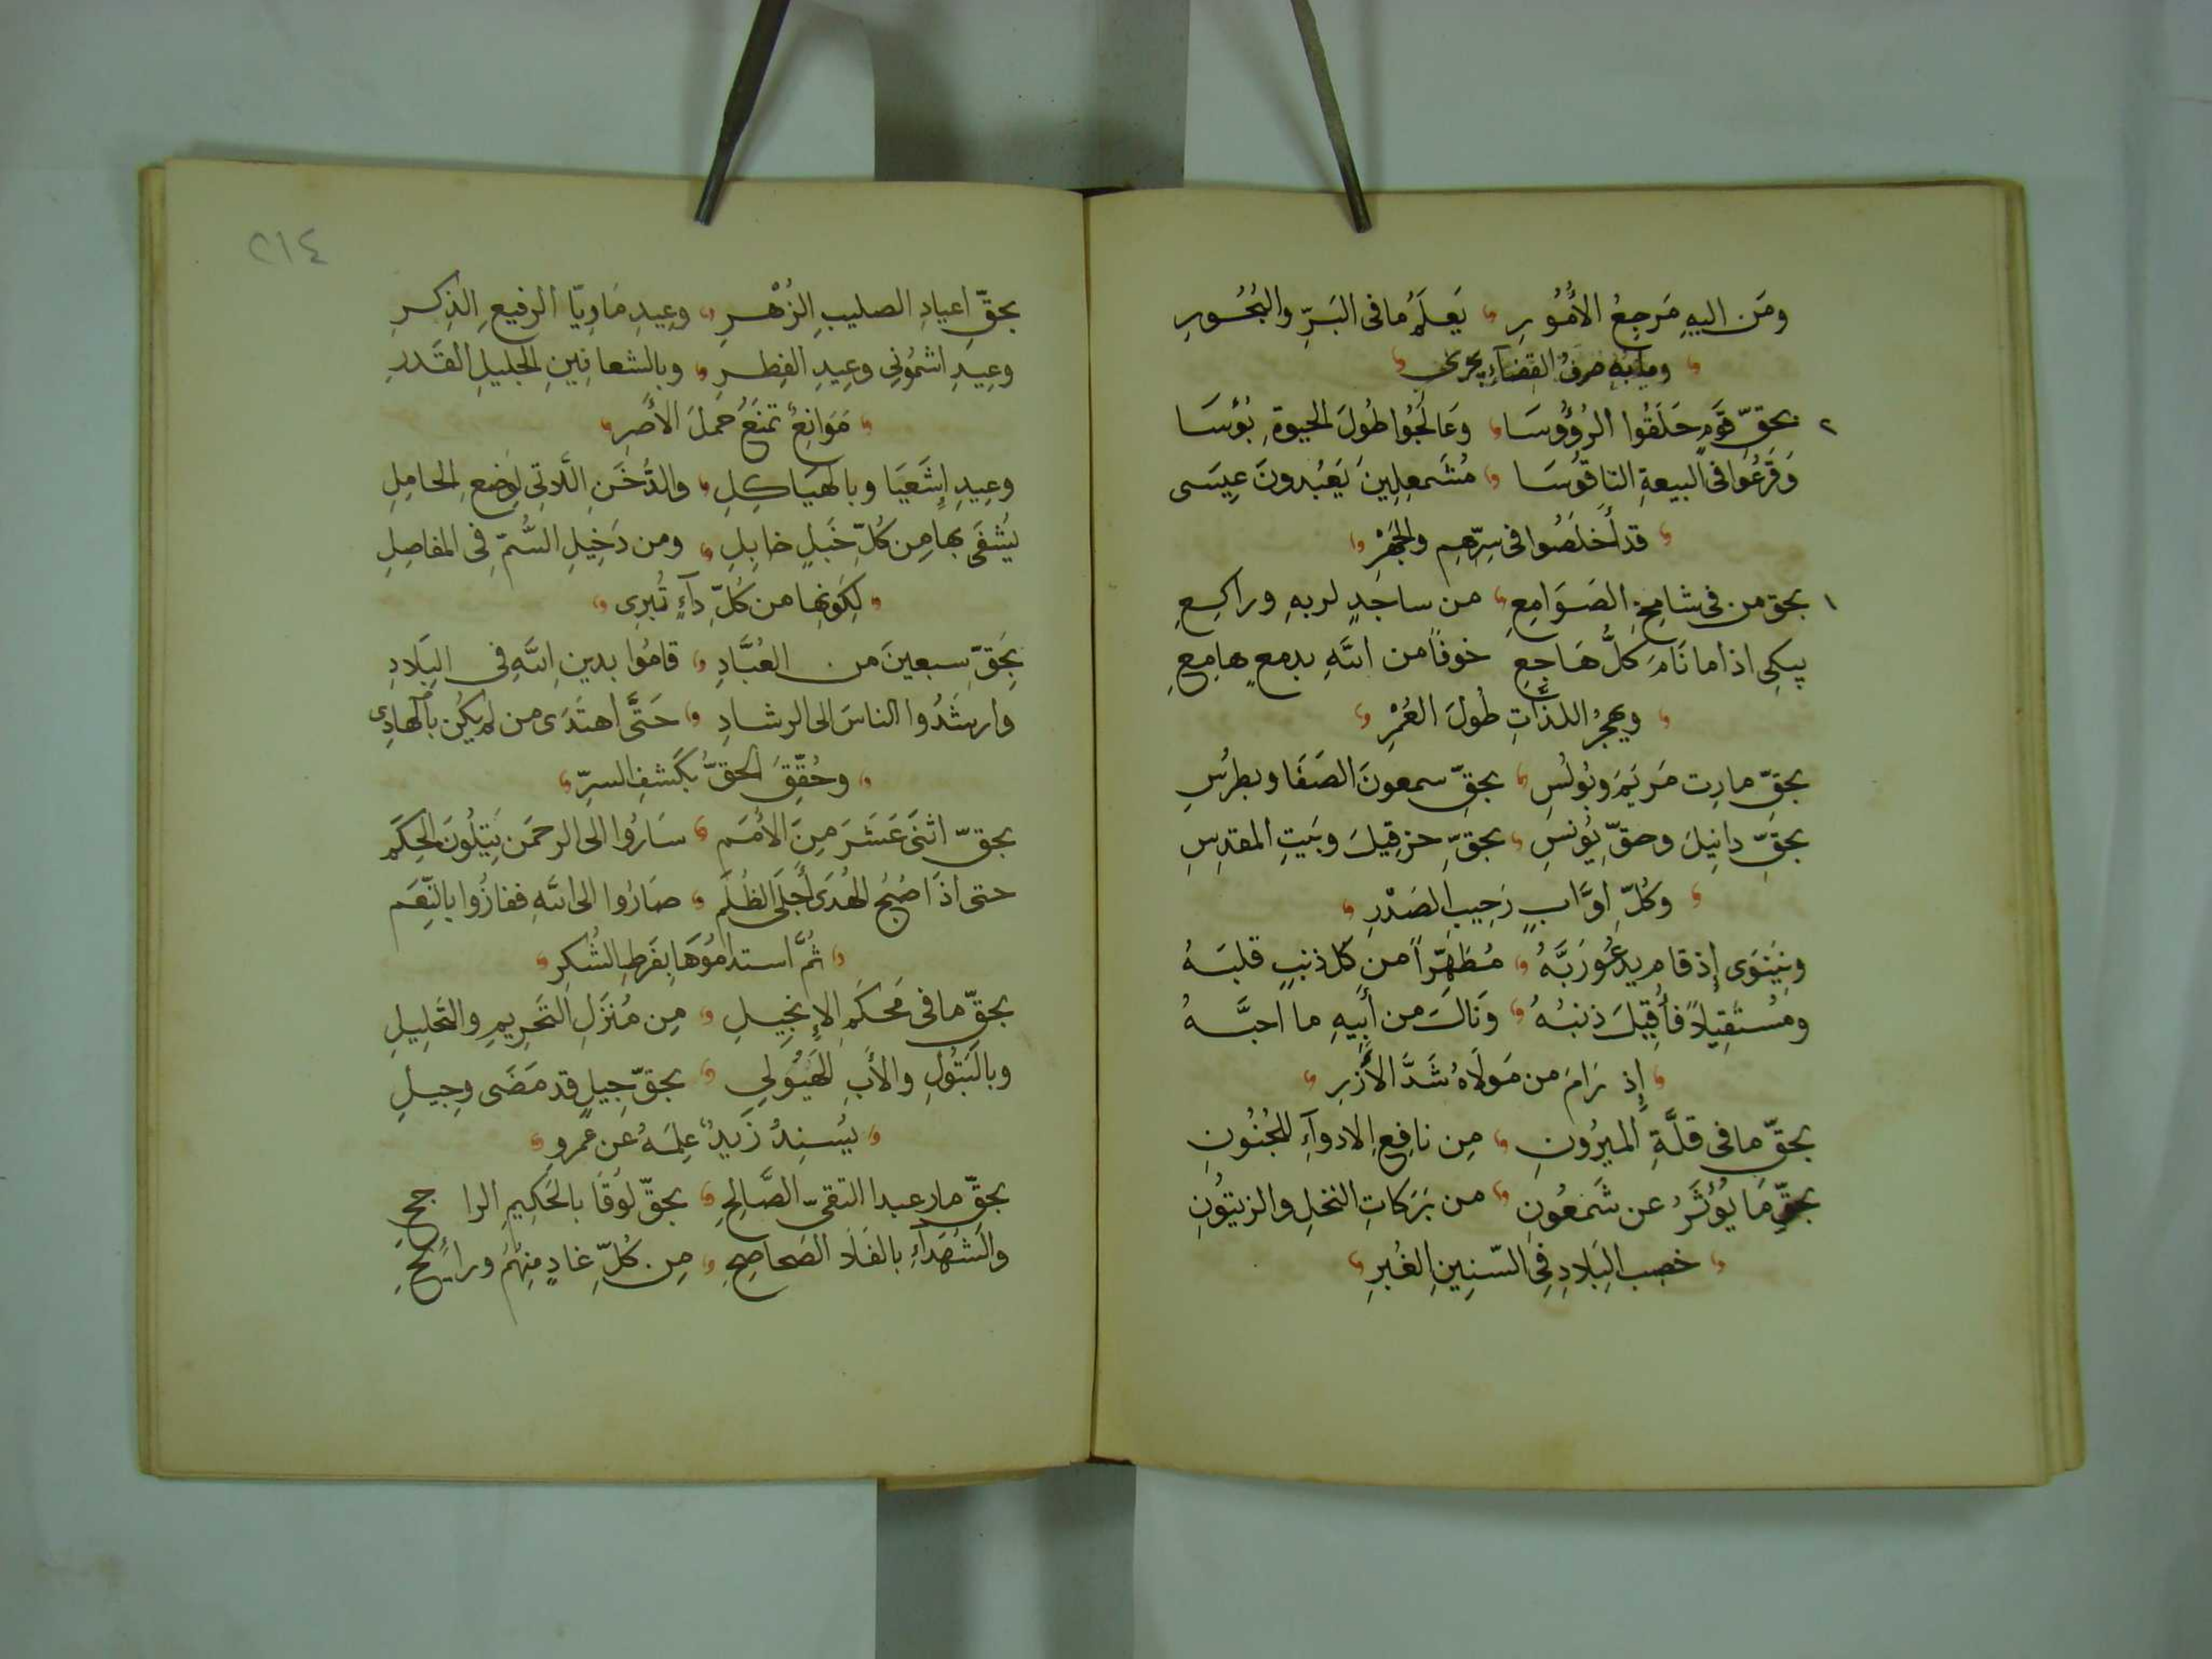 ومَن اليهِ مَرجِعُ الأُمُورِ يَعلَمُ ما فى البَرِّ والبُحُورِ
وما به صرفُ القضآءِ يجرى
٢ بحقِّ قَومٍ حَلَقُوا الرُؤُوسَا وعَالَجُوا طُولَ الحيوةِ بُؤسَا
وَقَرَعُوا فى البيعةِ الناقوُسَا مُشَمعِلِينَ يَعبُدونَ عِيسَى
قد أَخلَصُوا فى سِرِّهِم والجَهْرِ
١ بحقِ من فى شامِخِ الصَوَامِعِ من ساجدٍ لربهِ وراكِعِ
يبكى اذا ما نَامَ كلُّ هَاجِعِ خوفاً من اللهِ بدمعٍ هامِعِ
ويهجُر اللذَّاتِ طُولَ العُمْرِ
بحقِّ مارِت مَريَمَ وبُولُسِ بحقِّ سمعونَ الصَفَا وبطرُسِ
بحقِّ دانِيلَ وحقِّ يُونسِ بحقِّ حزقِيلَ وبَيتِ المقدِسِ
وكُلِّ اوَّابٍ رَحِيبِ الصَدْرِ
ونِينَوَى إذ قام يدعُو رَبَّهُ مُطَهِّراً من كل ذنبٍ قلبَهُ
ومُستَقِيلاً فأُقِيلَ ذنبُهُ وَنَالَ من أَبِيهِ ما احبَّهُ
إذ رَامَ من مَولَاهُ شَدَّ الأَزرِ
بحقِّ ما فى قلَّةِ الميرُونِ مِن نافِعِ الادوآءِ للجُنُونِ
بحقِّ مَا يُؤثَرُ عن شَمعُونِ من بَرَكاتِ النخلِ والزيتُونِ
خصب البِلَادِ فِى السّنِينِ الغُبرِ
٢١٤
بحقِّ اعيادِ الصليبِ الزُهْرِ وعِيدِ مَاريّا الرفيعِ الذِكرِ
وعِيدِ اشمُونِى وعِيدِ الفِطرِ وبالشعانِينِ الجليلِ القَدرِ
مَوَانِعُ تمنَعُ حملَ الأصرِ
وعِيدِ إشَعيَا وبالهيَاكِلِ والدُخَنِ اللَاتِى لِوضعِ الحامِلِ
يُشفَى بها مِن كُلِّ خَبلٍ خابِلِ ومن دَخِيلِ السُّمِّ فِى المفاصِلِ
لِكَونِها من كُلِّ دآءٍ تُبرِى
بِحَقِّ سبعينَ من العُبَّادِ قامُوا بدينِ اللهِ فِى البِلَادِ
وارشَدُوا الناسَ الى الرشادِ حَتَّى اهتَدَى من لم يكُن بالهادِى
وحُقِّقَ الحقُّ بكَشفِ السرِّ
بحقِّ اثنَى عَشَرَ مِنَ الأُمَم سَارُوا الى الرحمَن يَتلُونَ الحِكَم
حتى اذَا صُبحُ الهُدَى أَجلَى الظُلَم صَارُوا الى اللهِ ففازُوا بالنِّعَم
ثُمَّ استدامُوهَا بِفَرطِ الشُكرِ
بحقِّ ما فى مَحكَمِ الإنجِيلِ مِن مُنزَلِ التَحرِيمِ والتَحلِيلِ
وبالبَتُولِ والأَبِ الهَيُولِى بحقِّ جِيلٍ قد مَضَى وجِيلِ
يُسنِدُ زَيدٌ عِلمَهُ عن عَمرو
بحقِّ مار عبدا التقىِّ الصَّالِحِ بحقِّ لوُقَا بالحَكِيمِ الراجحِ
والشُهَدآءِ بالفَلَا الصَحاصِحِ مِن كُلِّ غادٍ مِنهُم ورائحِ